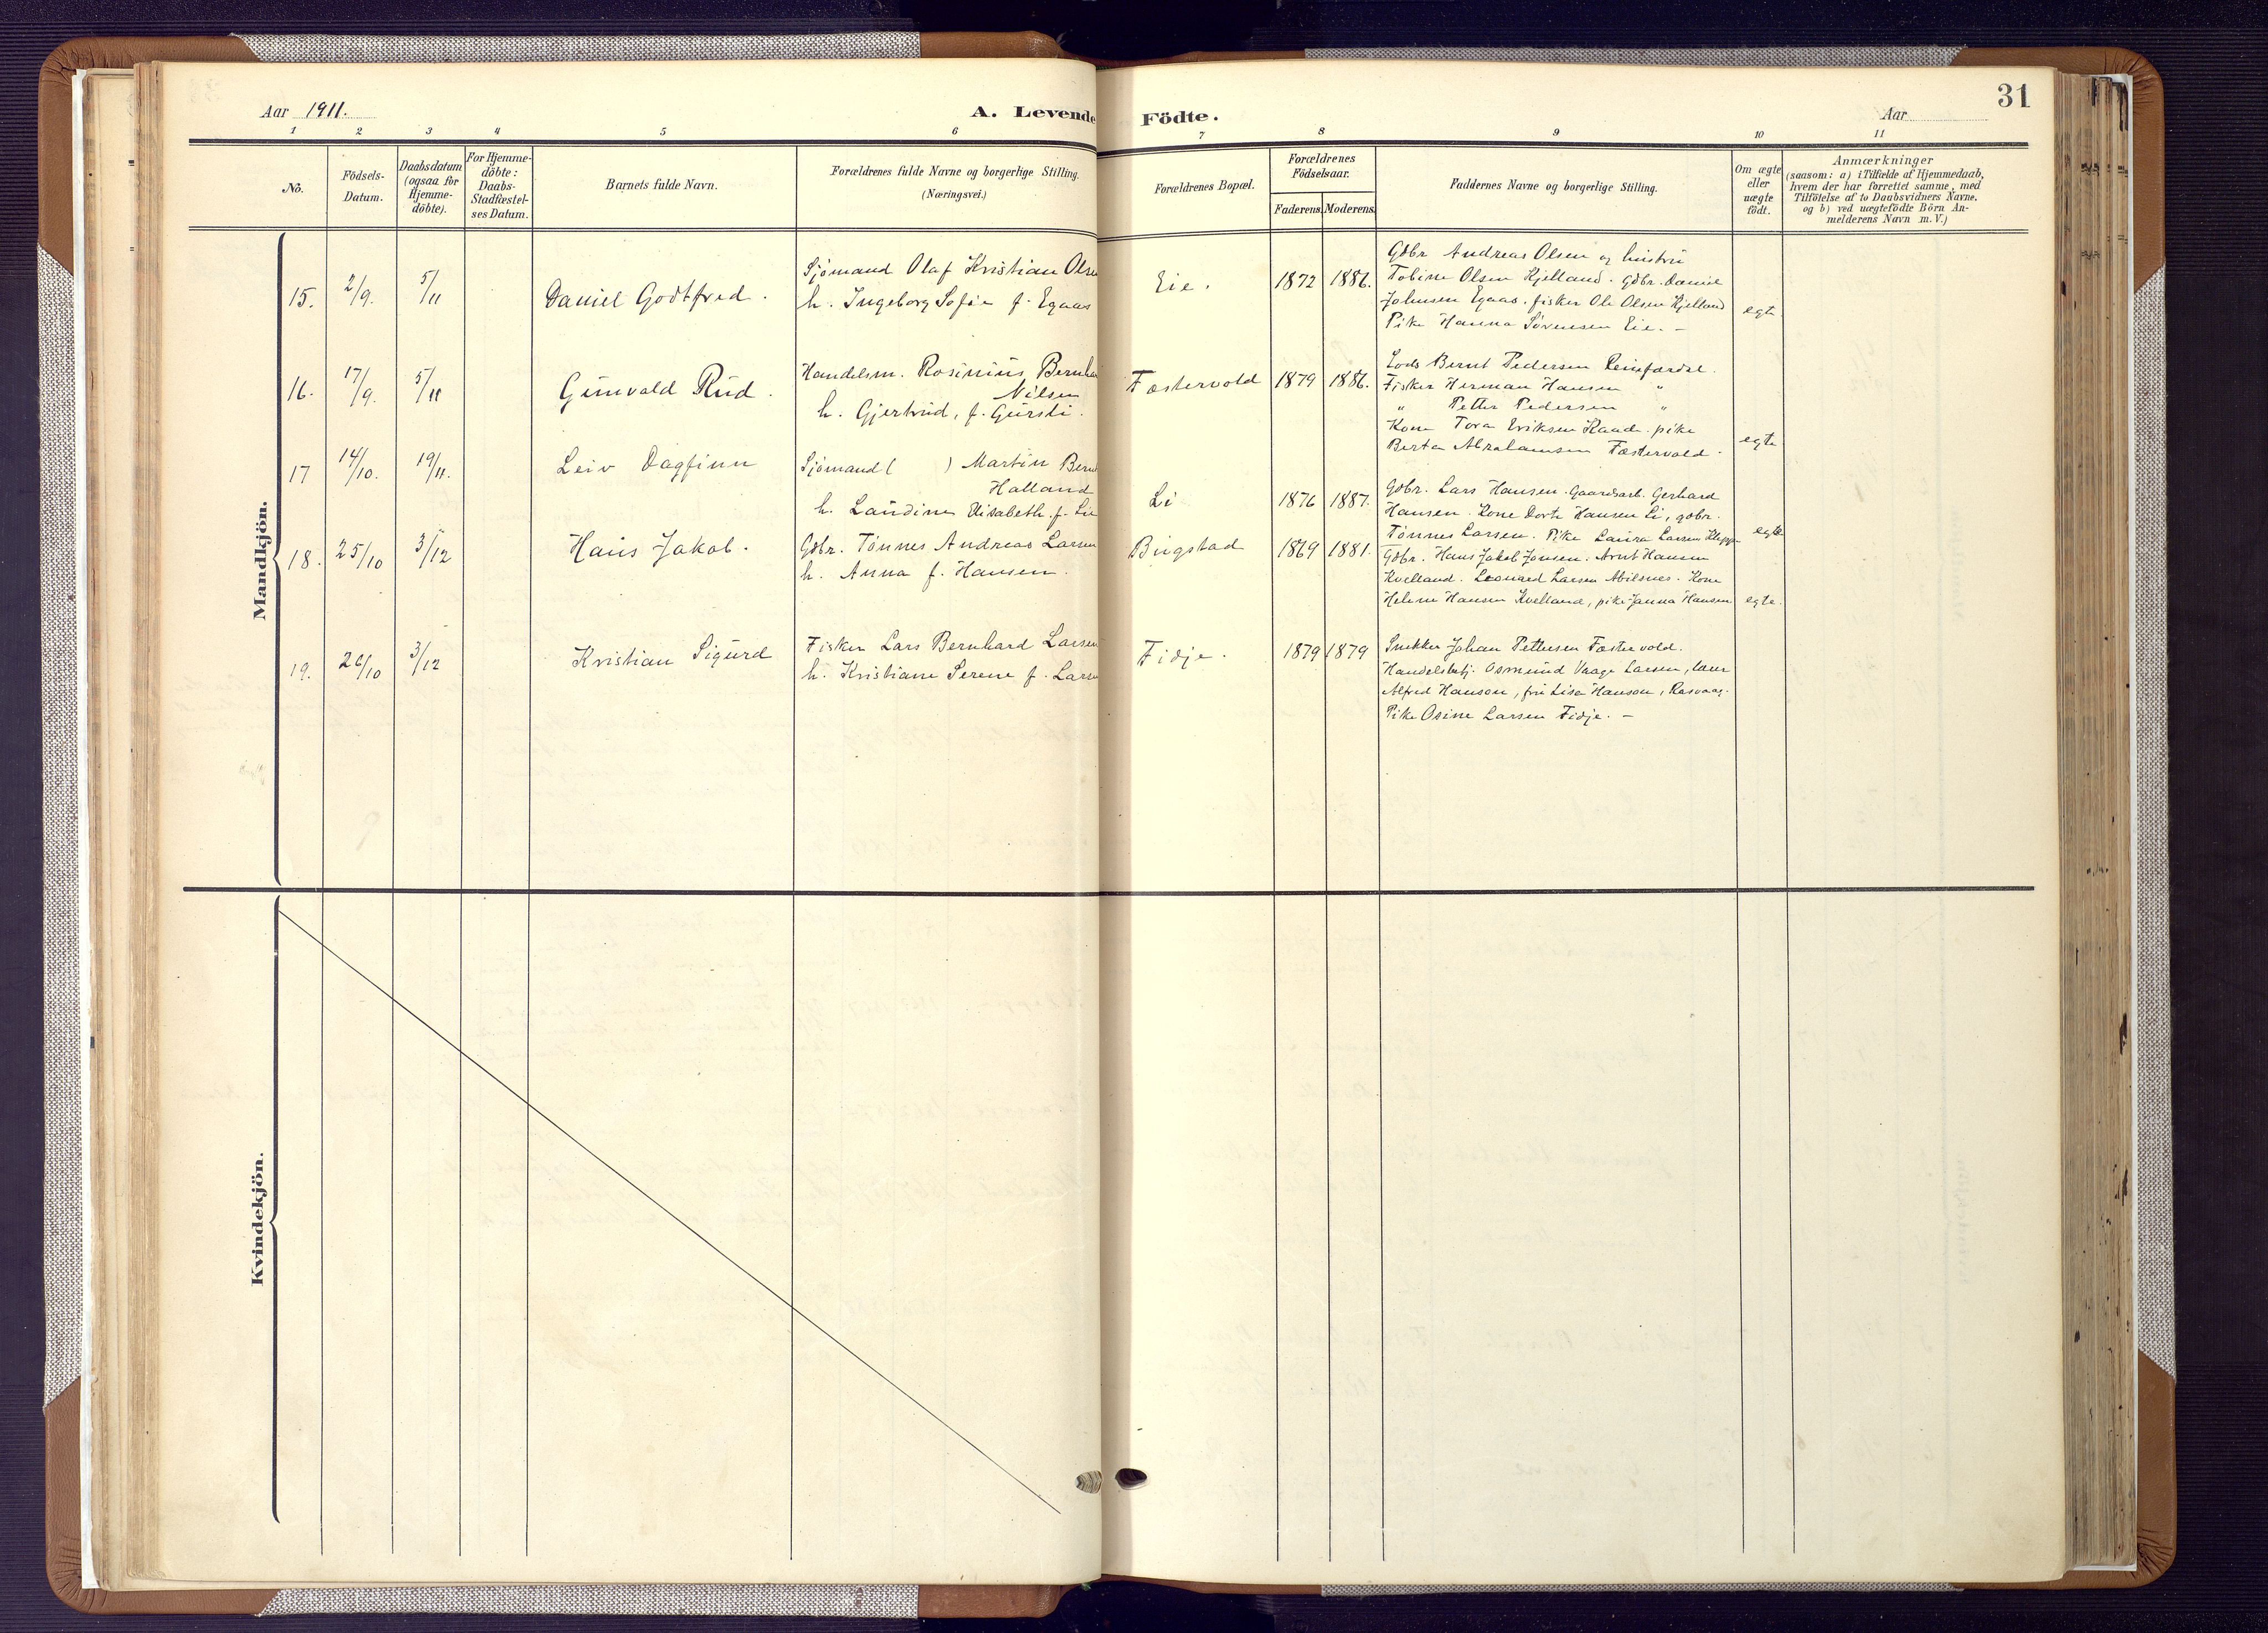 31
Aar 1911.
A. Levende Födte.
Aar
1 2 3 4 5 6 7 8 9 10 11
No.
Födsels-Datum.
Daabsdatum (ogsaa for Hjemme-döbte).
For Hjemme-döbte: Daabs-Stadfæstel-ses Datum.
Barnets fulde Navn.
Forældrenes fulde Navne og borgerlige Stilling.
(Næringsvei.)
Forældrenes Bopæl.
Forældrenes Födselsaar.
Faderens. Moderens.
Faddernes Navne og borgerlige Stilling.
Om ægte eller uægte födt.
Anmærkninger
(saasom: a) i Tilfælde af Hjemmedaab,
hvem der har forrettet samme, med
Tilföielse af to Daabsvidners Navne,
og b) ved uægtefödte Börn An-
melderens Navn m. V.)
Mandkjön.
15. 2/9. 5/11 Daniel Godtfred.
Sjömand Olaf Kristian Olsen
h. Ingeborg Sofie f. Egaas
Eie. 1872 1886.
Gdbr Andreas Olsen og hustru
Tobine Olsen Kjelland. Gdbr. Daniel
Johnsen Egaas. fisker Ole Olsen Kjelland
Pike Hanna Sörensen Eie. –
egte
16. 17/9. 5/11 Gunvald Rud.
Handelsm. Rosinius Bernha
Nilsen
h. Gjertrud, f. Gursli.
Fæstervold 1879 1886.
Lods Bernt Pedersen Reinfardal.
Fisker Herman Hansen "
" Petter Pedersen "
Kone Tora Eriksen Haad. pike
Berta Abrahamsen Fæstervold.
egte
17 14/10. 19/11. Leiv Dagfinn
Sjömand ( ) Martin Bern
Halland
h. Landine Elisabeth f. Lie
Li 1876 1887.
Gdbr. Lars Hansen. Gaardsarb. Gerhard
Hansen. Kone Dorte Hansen Li, gdbr.
Tönnes Larsen. Pike Laura Larsen Kleppe
egte
18. 25/10 3/12 Hans Jakob.
Gdbr. Tönnes Andreas Larsen
h. Anna f. Hansen.
Bugstad 1869 1881.
Gdbr. Hans Jakob Jonsen. Arnt Hansen
Kvelland. Leonard Larsen Abilsnes. Kone
Helene Hansen Kvelland, pike Janna Hansen
egte.
19. 26/10 3/12 Kristian Sigurd
Fisker Lars Bernhard Larsen
h. Kristiane Serene f. Larse
Fidje. 1879 1879
Snekker Johan Pettersen Fæstervold.
Handelsbetj. Osmund Vaage Larsen, lærer
Alfred Hanson, fru Lisa Hanson, Rasvaag.
Pike Osine Larsen Fidje. –
Kvindekjön.